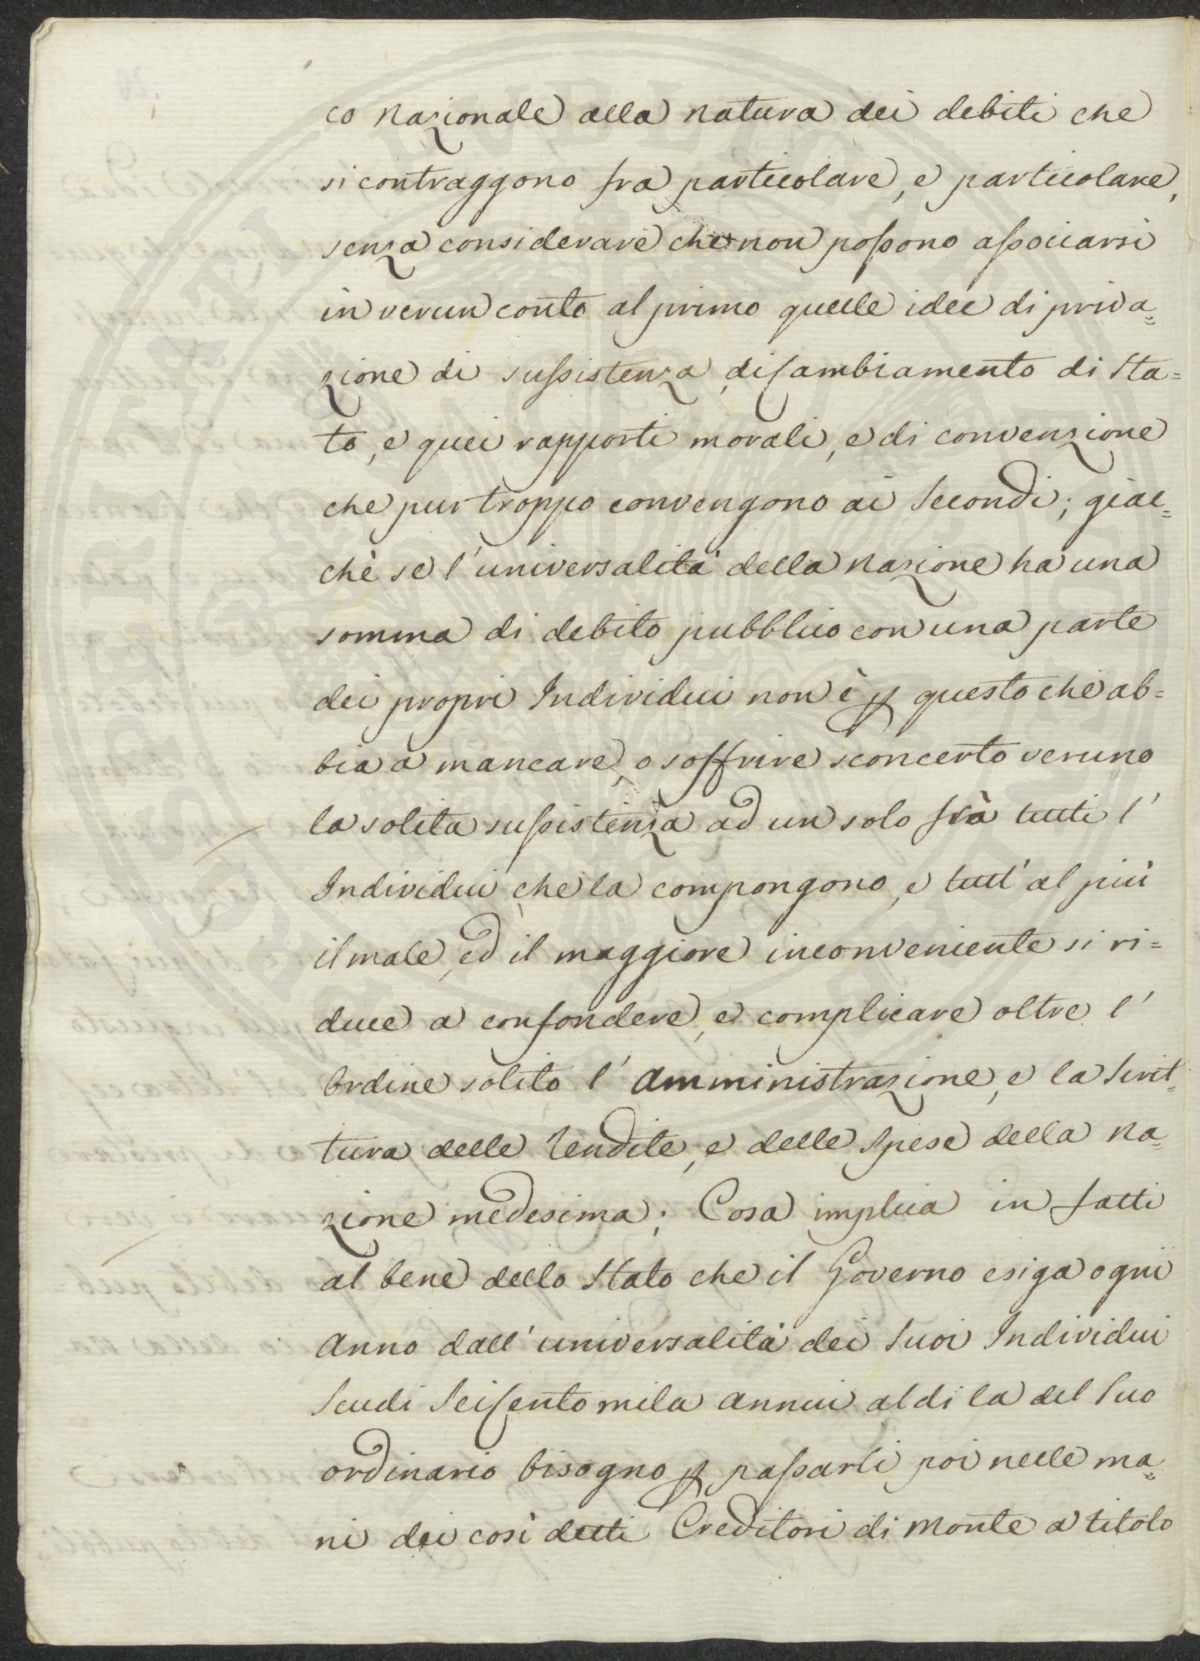 co nazionale alla natura dei debiti che
si contraggono fra particolare, e particolare,
senza considerare che non possono associarsi
in verun conto al primo quelle idee di priva=
zione di sussistenza, di cambiamento di Sta=
to, e quei rapporti morali, e di convenzione
che pur troppo convengono ai Secondi; giac=
chè se l'universalità della nazione ha una
somma di debito pubblico con una parte
dei propri Individui non è ꝑ questo che ab=
bia a mancare, o soffrire sconcerto veruno
la solita sussistenza ad un solo frà tutti l'
Individui, che la compongono, e tutt'al più
il male, ed il maggiore inconveniente si ri=
duce a confondere, e complicare oltre l'
ordine solito l'amministrazione, e la Scrit=
tura delle rendite, e delle Spese della na=
zione medesima; Cosa implica in fatti
al bene dello Stato che il Governo esiga ogni
Anno dall'universalità dei Suoi Individui
Scudi Seicento mila annui al di la del Suo
ordinario bisogno ꝑ passarli poi nelle ma=
ni dei così detti Creditori di Monte a titolo